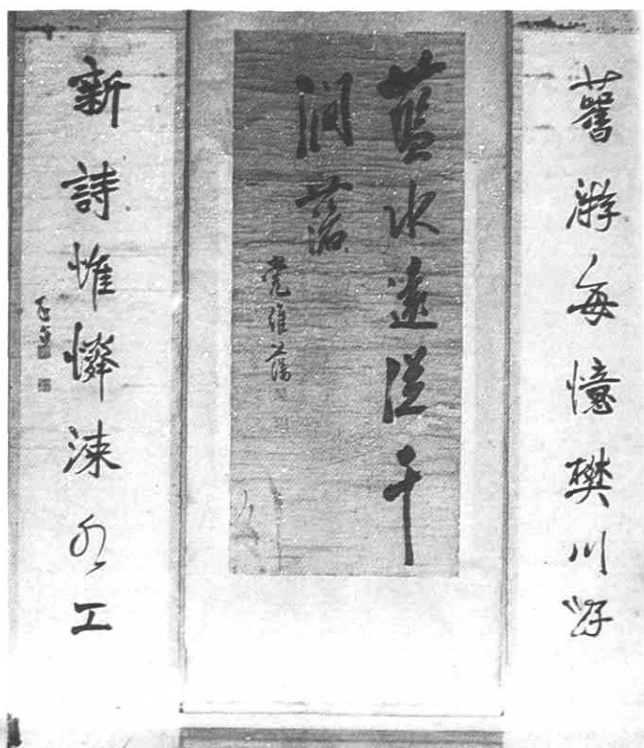 舊游每憶樊川好
藍水遠從千
澗落
党維藩
新詩惟憐涑水工